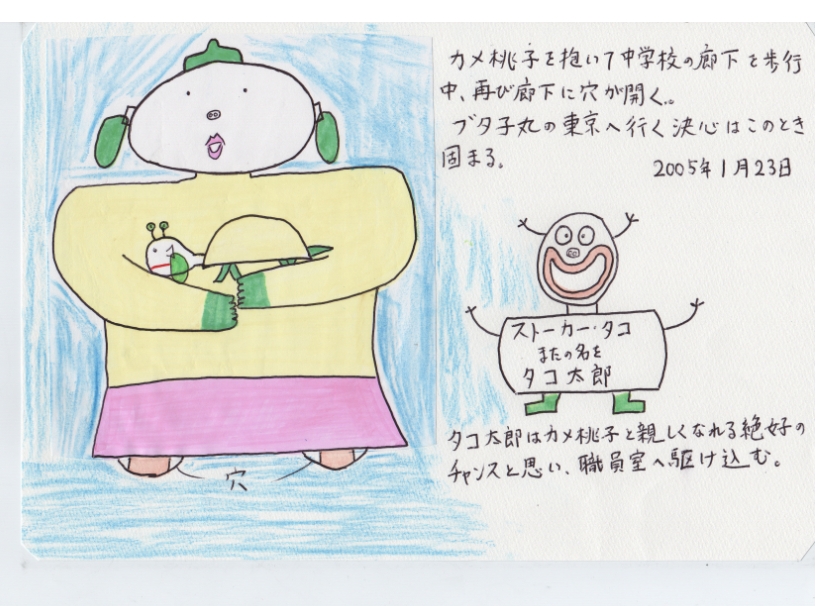 カメ桃子を抱いて中学校の廊下を歩行
中、再び廊下に穴が開く。
ブタ子丸の東京へ行く決心はこのとき
固まる。
2005年1月23日
ストーカー・タコ
またの名を
タコ太郎
タコ太郎はカメ桃子と親しくなれる絶好の
チャンスと思い、職員室へ駆け込む。
穴